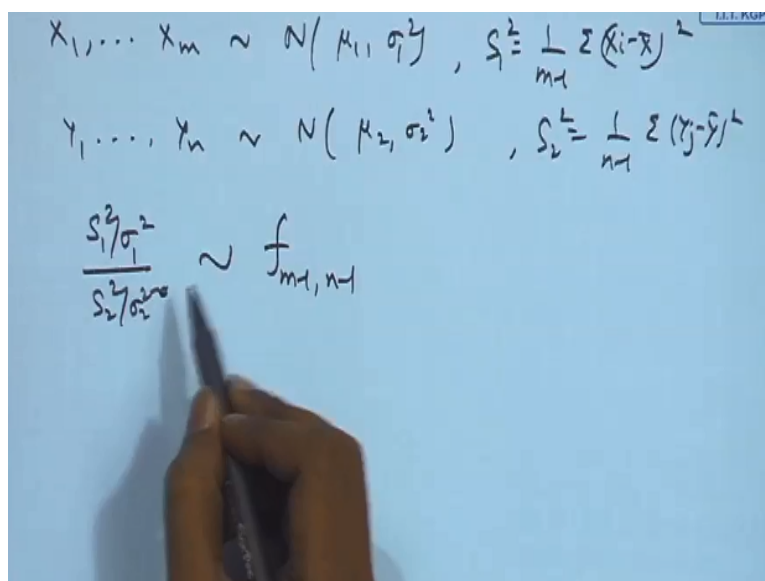 I.I.T. KGP
X₁, ... Xₘ ~ N( μ₁, σ₁²) , S₁² = 1/(m-1) Σ(Xi-X̄)²
Y₁, ...., Yₙ ~ N( μ₂, σ₂²) , S₂² = 1/(n-1) Σ(Yj-Ȳ)²
(S₁²/σ₁²)/(S₂²/σ₂²) ~ f m-1, n-1